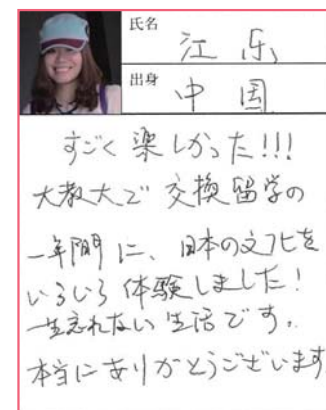 氏名 江 乐
出身 中 国
すごく楽しかった!!!
大教大で交換留学の
一年間に、日本の文化を
いろいろ体験しました!
一生忘れない生活です。
本当にありがとうございます